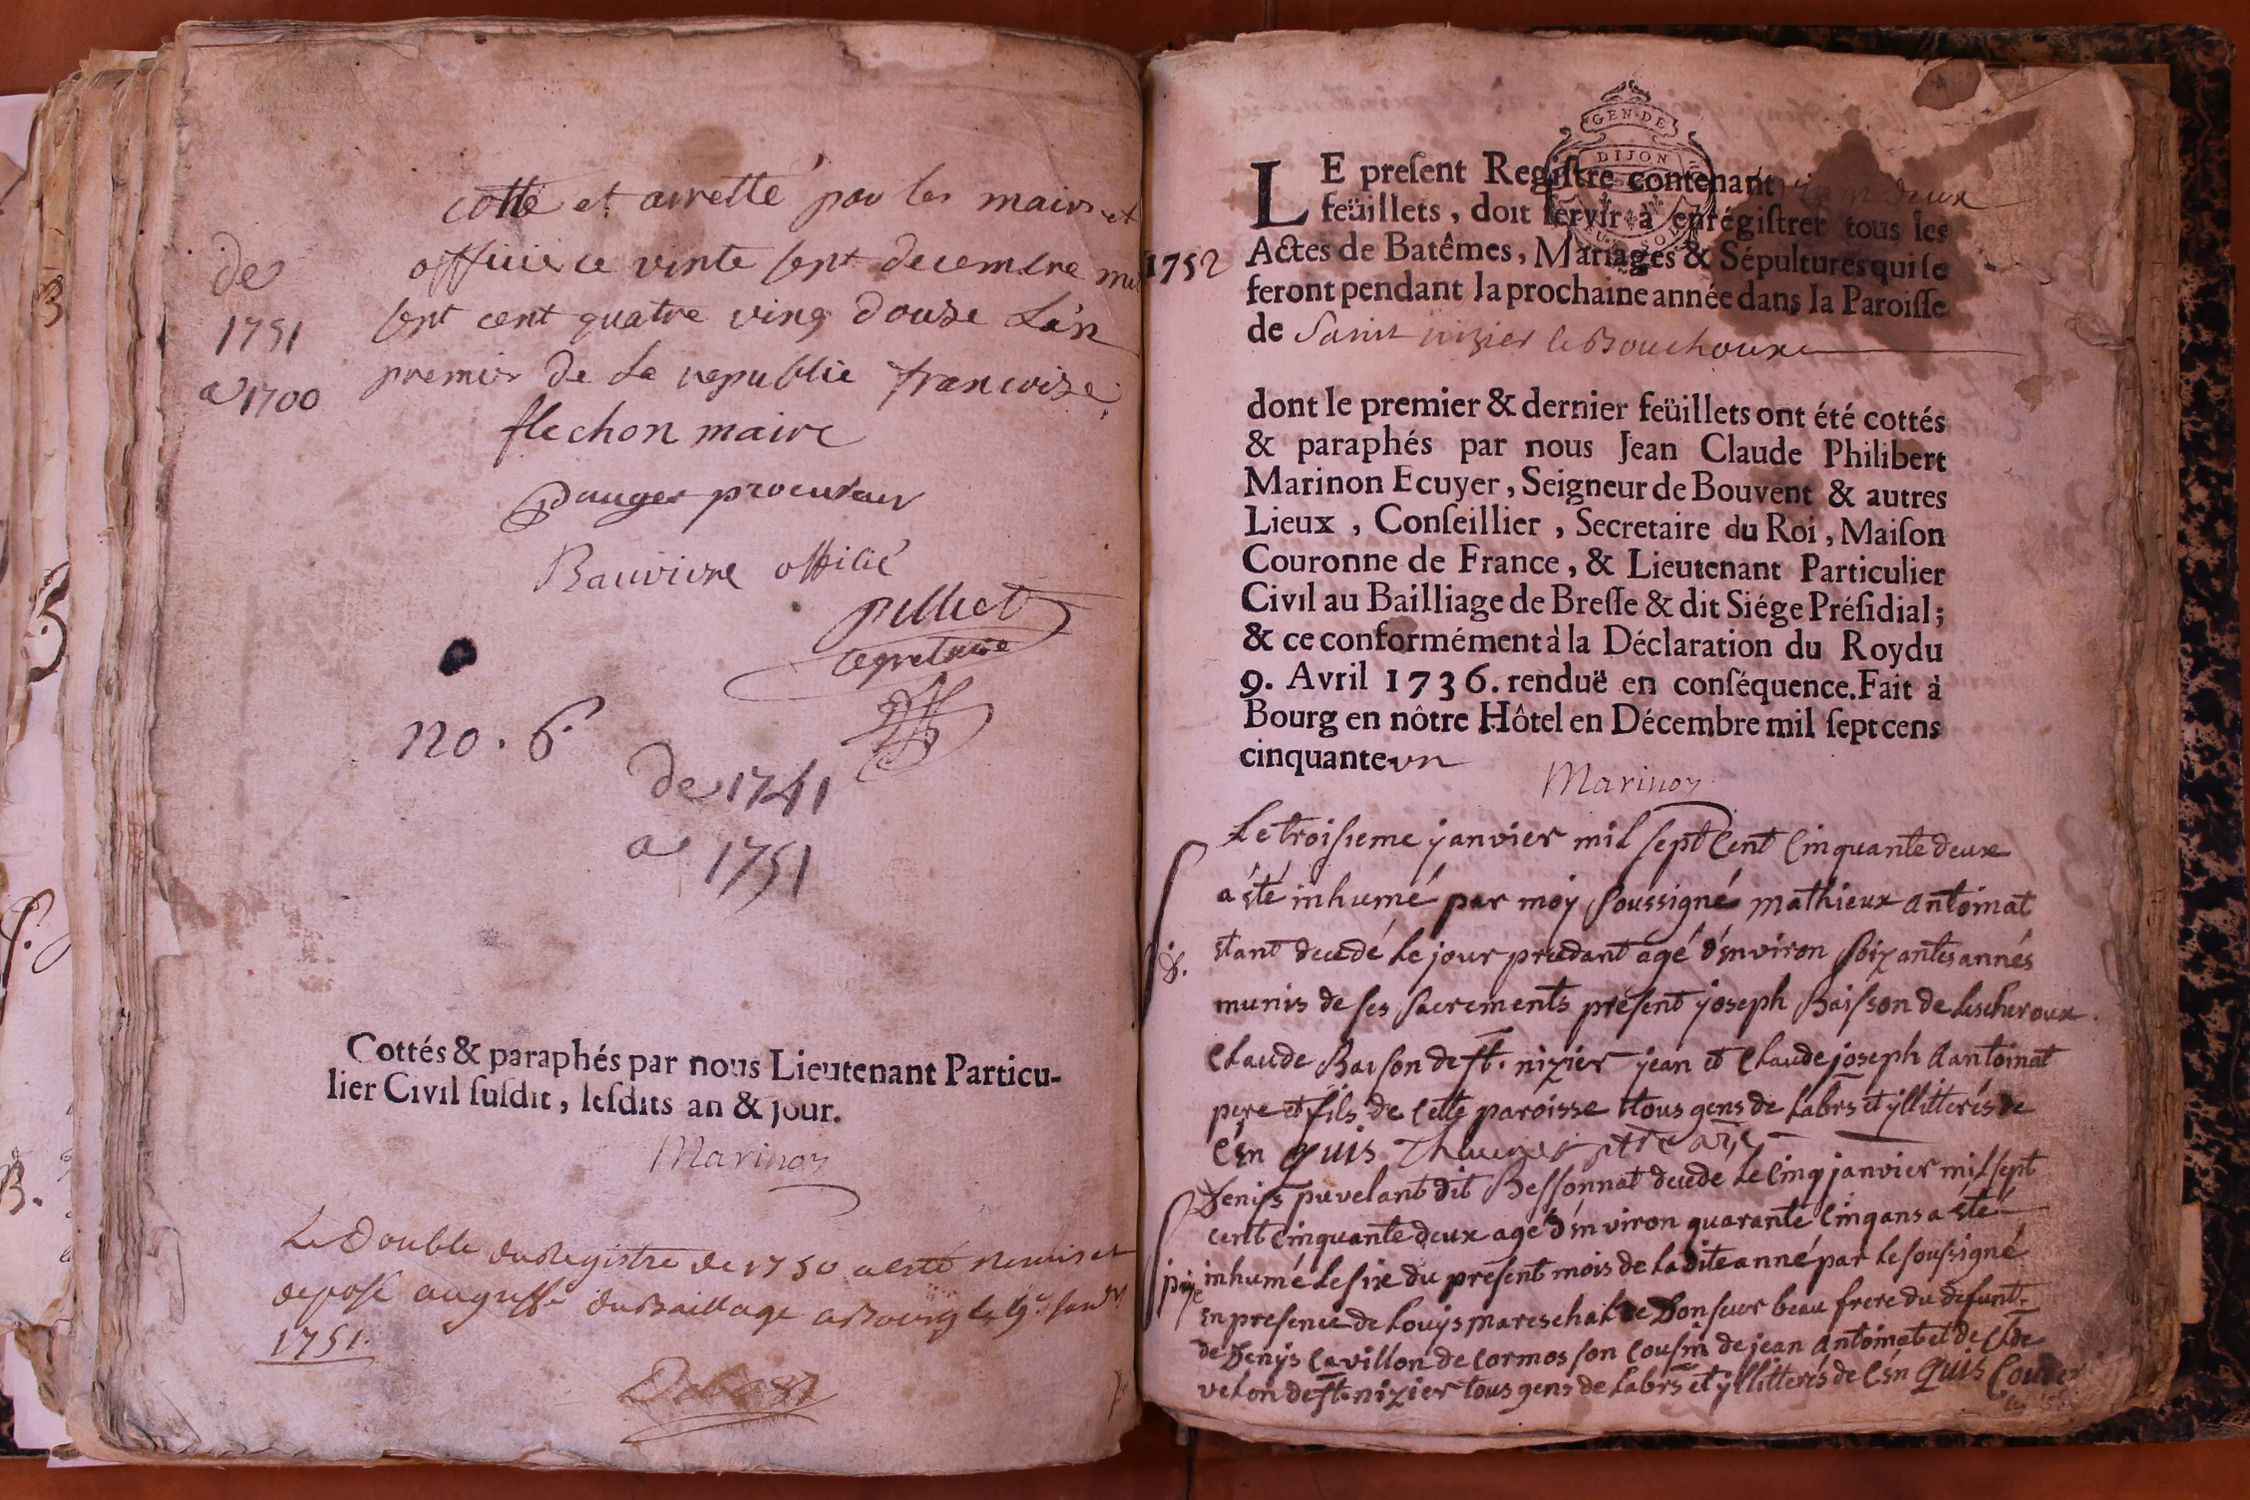 cotté et arretté par les maire et
officie ce vinte sept decembre mil
sept cent quatre ving douze Lan
premier de la republic francoise
flechon maire
procureur
Bauvivre offilié
pilliet
segretaire
de
1751
a 1700
no. 6.
de 1741
a 1751
Cottés & paraphés par nous Lieutenant Particu-
lier Civil ſuſdit, leſdits an & jour.
Marinon
Le Double du Registre de 1750 a esté remis et
deposé au greffe du Baillage a Bourg le
1751.
GEN·DE
DIJON
1752
LE preſent Regiſtre contenant deux
feüillets, doit ſervir à enrégiſtrer tous les
Actes de Batêmes, Mariages & Sépultures qui ſe
feront pendant la prochaine année dans la Paroiſſe
de Saint nizier le Bouchoux
dont le premier & dernier feüillets ont été cottés
& paraphés par nous Jean Claude Philibert
Marinon Ecuyer, Seigneur de Bouvent & autres
Lieux, Conſeillier, Secretaire du Roi, Maiſon
Couronne de France, & Lieutenant Particulier
Civil au Bailliage de Breſſe & dit Siége Préſidial;
& ce conformément à la Déclaration du Roy du
9. Avril 1736. renduë en conſéquence. Fait à
Bourg en nôtre Hôtel en Décembre mil ſept cens
cinquante un
Marinon
Le troisieme janvier mil sept Cent Cinquante deux
a esté inhumé par moy soussigné mathieux antoinat
etant decedé le jour precedant agé d'environ soixantes annés
munis de ses sacrements présent joseph Baisson de Lescheroux
Claude Baison de st. nizier jean et Claude joseph antoinat
pere et fils de Cette paroisse ttous gens de Labrs et yllitterés de
Cen quis
Denis puvelant dit Bessonnat decede le cinq janvier mil sept
cent cinquante deux agé d'environ quarante cinq ans a esté
inhumé le six du present mois de la dite anné par le soussigné
en presence de Louys mareschal de Donseur beau frere du defunt
de Denys Cavillon de Cormos son cousin de jean antoinat et de Clde
velon de st. nizier tous gens de Labrs et yllitterés de Cen quis